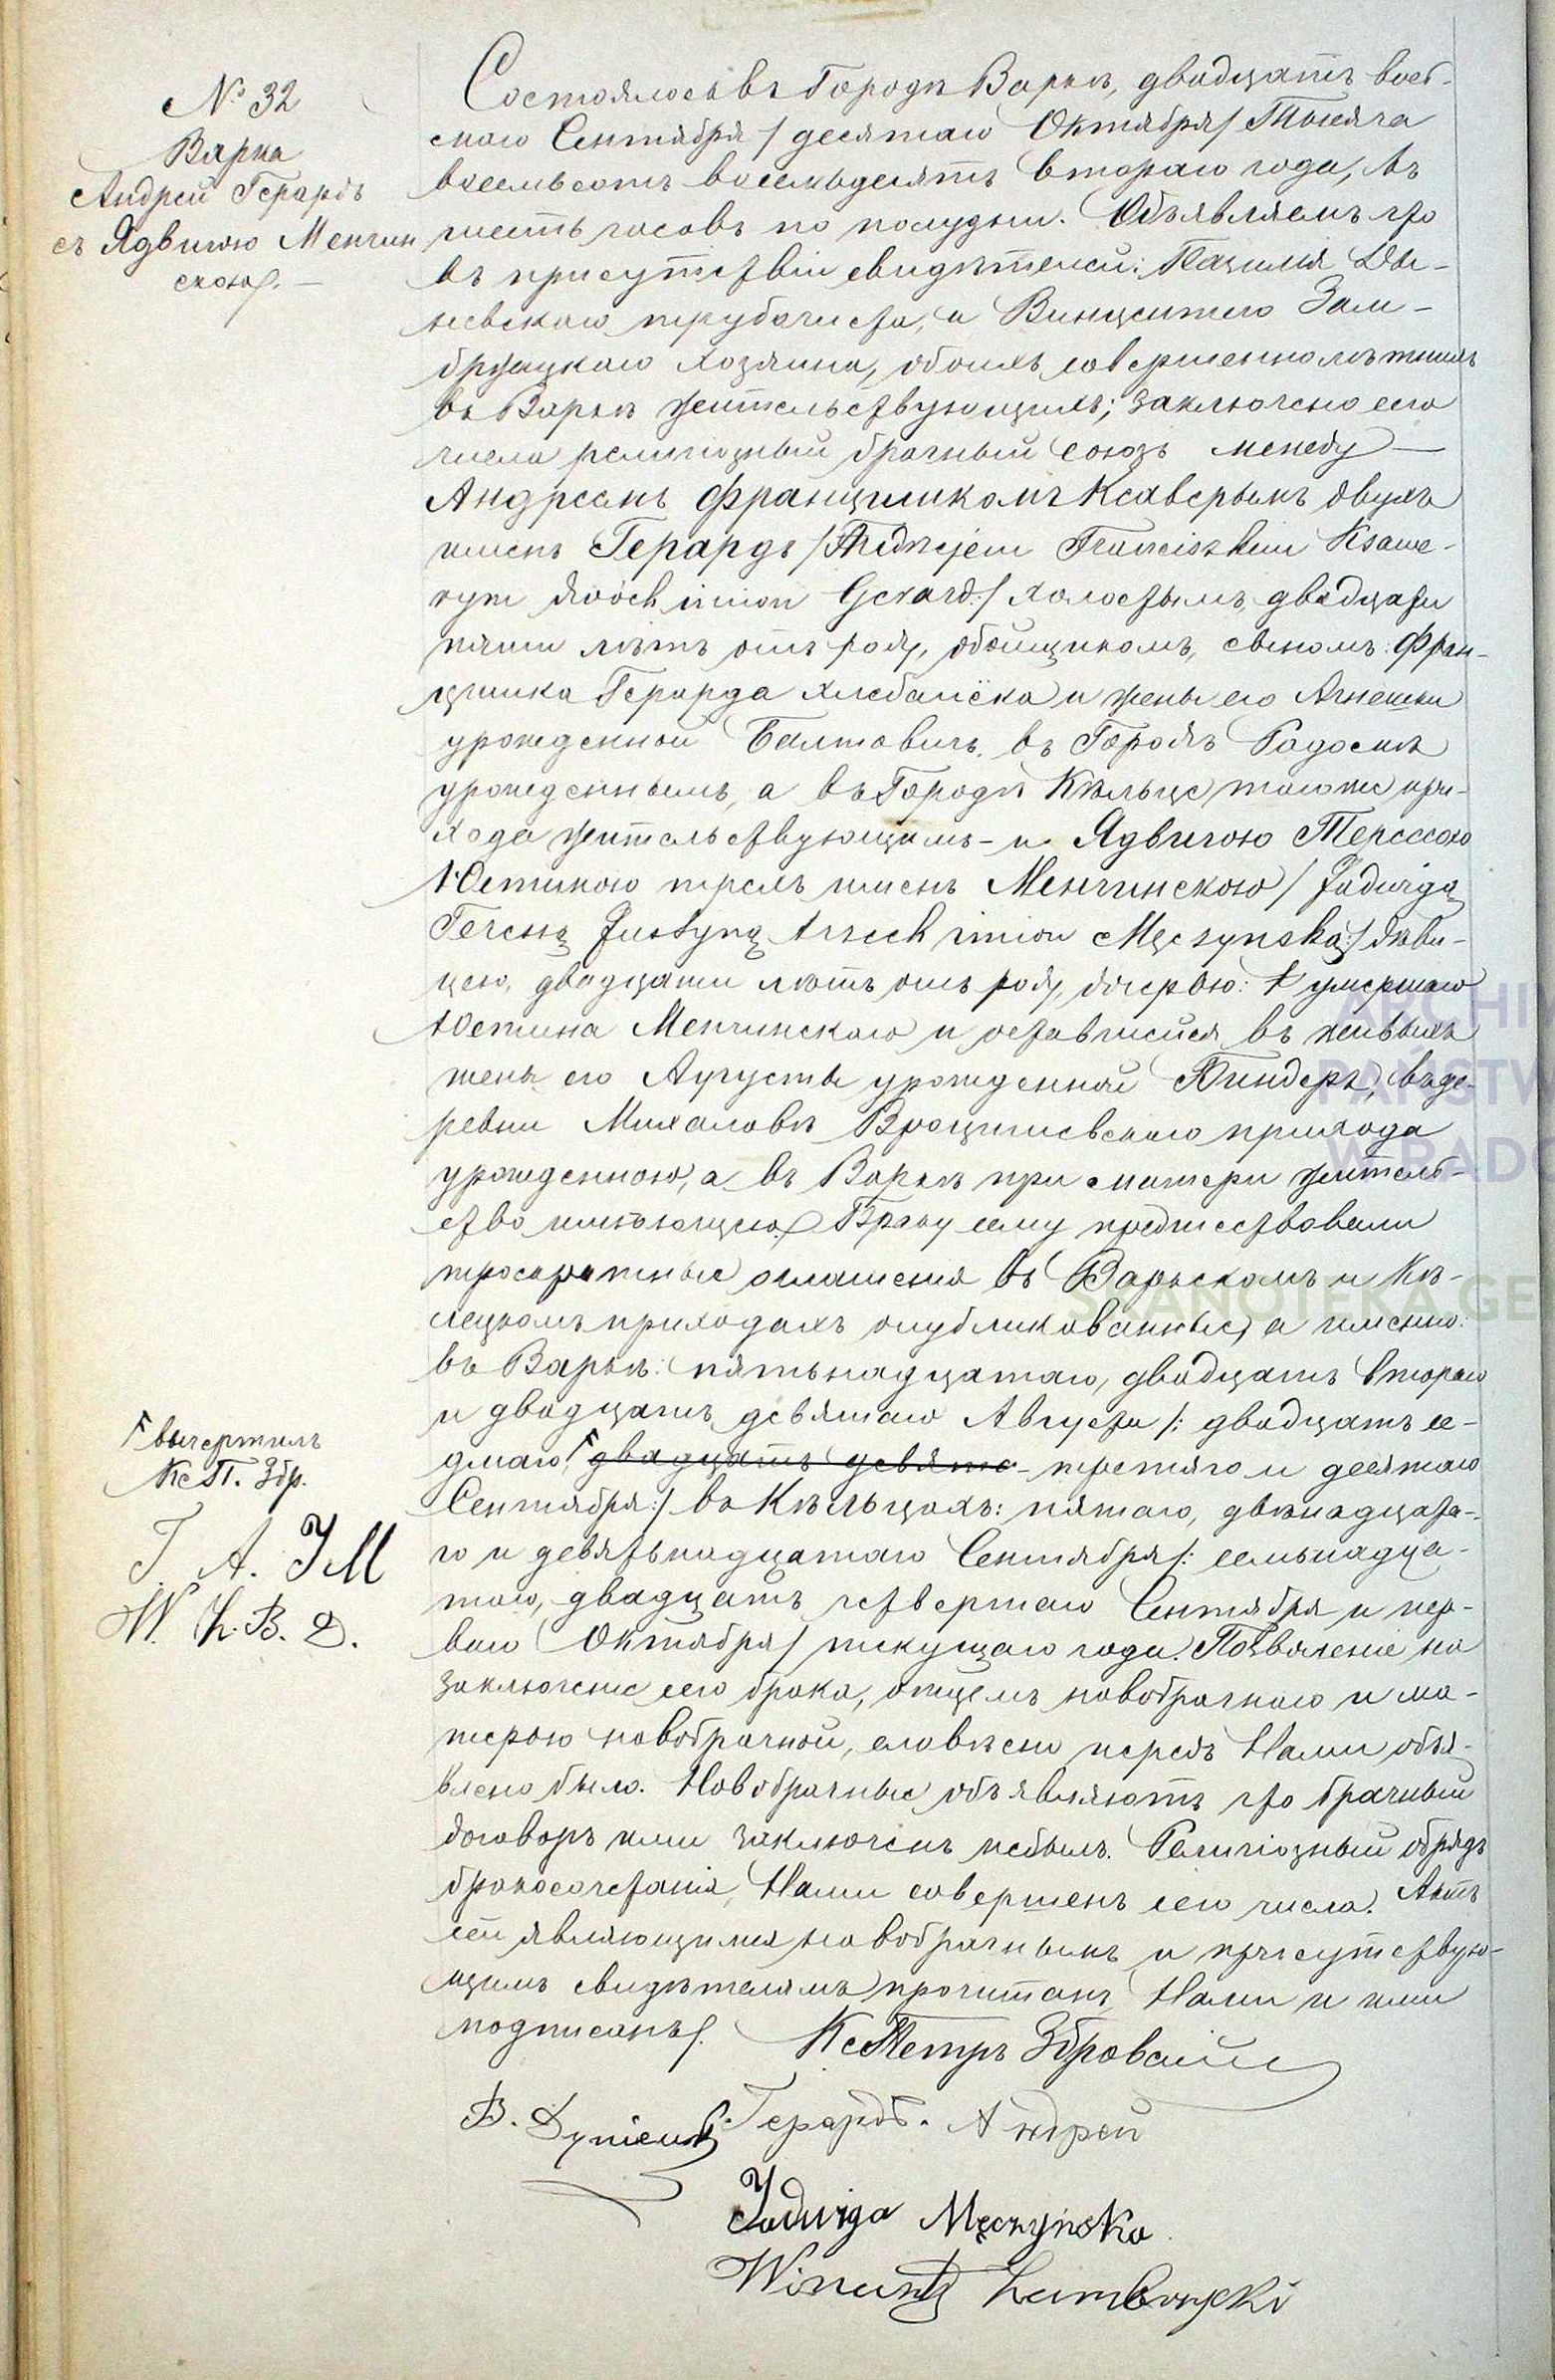 № 32
Варка
Андрей Герардъ
съ Ядвигою Менчин
скою.
Состоялось въ Городѣ Варкѣ, двадцать вось-
маго Сентября / десятаго Октября / Тысяча
восемьсотъ восемьдесятъ втораго года, въ
шесть часовъ по полудни. Объявляемъ что
въ присутствіи свидѣтелей:
невскаго трубочиста, и Винцентаго Зам-
бржицкаго хозяина, обоихъ совершеннолѣтнихъ
въ Варкѣ жительствующихъ; заключено сего
числа религіозный брачный союзъ между
Андреемъ Францишкомъ Ксаверымъ двухъ
именъ Герардъ / Andrzejem Franciszkiem Ksawe-
rym dwóch imion Gerard:/ холостымъ, двадцати
пяти лѣтъ отъ роду, обойщикомъ, сыномъ: Фран-
цишка Герарда и жены его Агнешки
урожденной Балтовичъ, въ Городѣ Радомѣ
урожденнымъ, а въ Городѣ Кѣльце тогоже при-
хода жительствующимъ - и Ядвигою Терессою
Юстиною трехъ именъ Менчинскою / Jadwigą
Teressą Justyną trzech imion Męczynską:/ дѣви-
цею, двадцати лѣтъ отъ роду, дочерью: умершаго
Юстина Менчинскаго и оставшейся въ живыхъ
жены его Августы урожденной Биндеръ, въ де-
ревни Михаловѣ Вроцишевскаго прихода
урожденною, а въ Варкѣ при матери житель-
ство имѣющею. Браку сему предшествовали
троекратные оглашенія въ Варкскомъ и Кѣ-
лецкомъ приходахъ опубликованные, а именно:
въ Варкѣ: пятьнадцатаго, двадцать втораго
и двадцать девятаго Августа /: двадцать се-
дмаго, двадцать девято- третяго и десятаго
Сентября:/ въ Кѣльцахъ: пятаго, двѣнадцата-
го и девятьнадцатаго Сентября /: семьнадца-
таго, двадцать четвертаго Сентября и пер-
ваго Октября / текущаго года. Позволеніе на
заключеніе сего брака, отцемъ новобрачнаго и ма-
терью новобрачной, словесно передъ Нами объя-
влено было. Новобрачные объявляютъ что брачный
договоръ ими заключенъ небылъ. Религіозный обрядъ
бракосочетанія, Нами совершенъ сего числа. Актъ
сей являющимся новобрачнымъ и присутствую-
щимъ свидѣтелямъ прочитанъ, Нами и ими
подписанъ.
вычертилъ
Кс П. Збр.
Г. А. JM
W. Z. В. D.
Кс Петръ
В. Герардъ. Андрей
Jadwiga Męczyńska
Wincenty Zambrzycki
ARCHI
PAŃSTW
W RADO
SKANOTEKA.GE